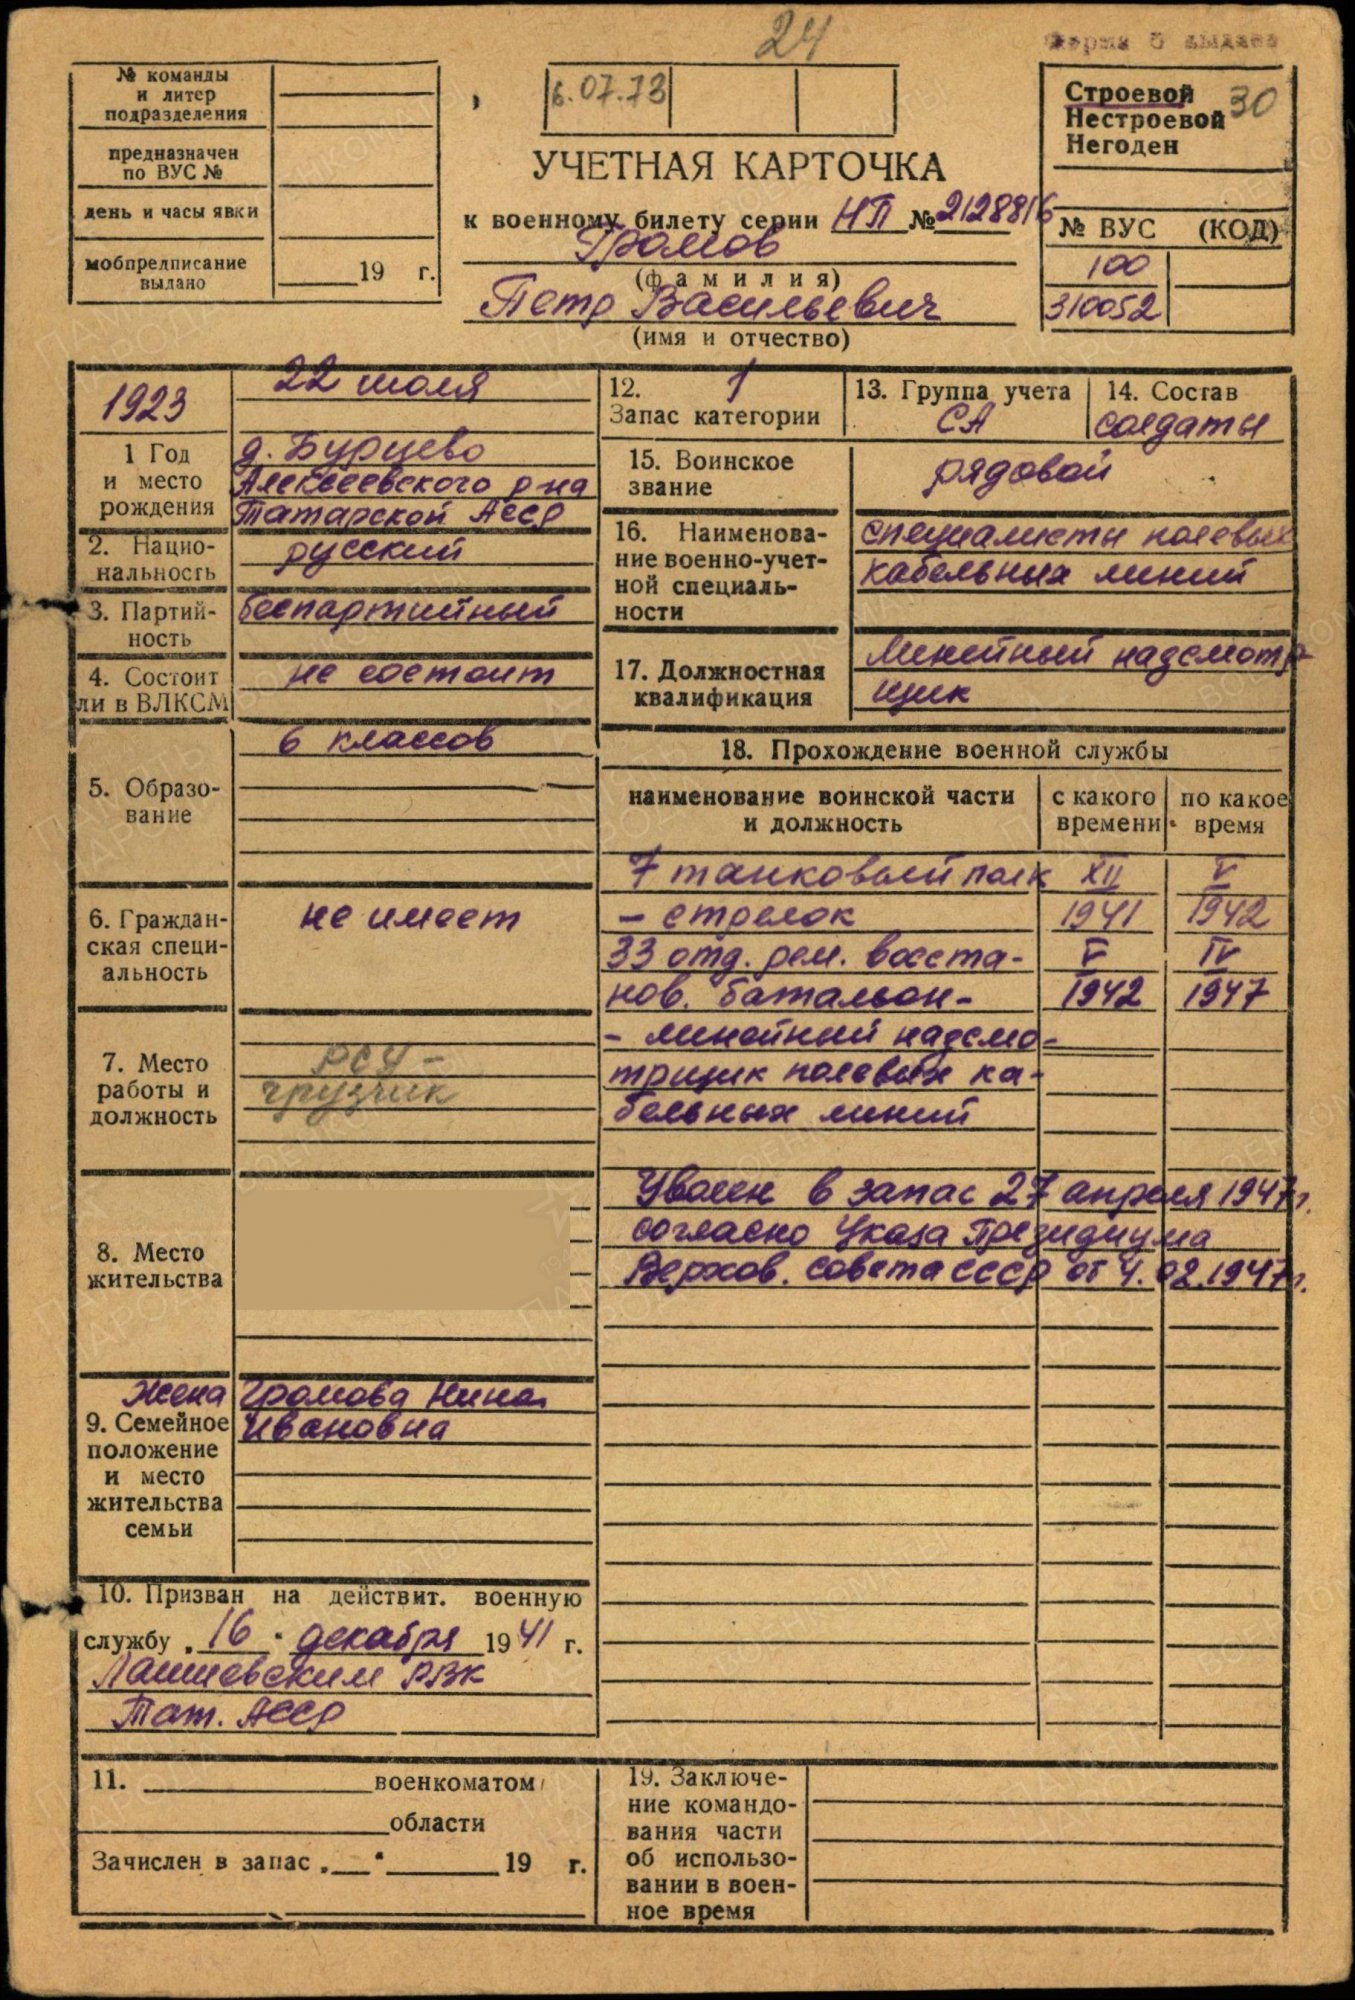 24
Форма 5 выдана
№ команды
и литер
подразделения
предназначен
по ВУС №
день и часы явки
мобпредписание
выдано
19 г.
6.07.73
Строевой
Нестроевой
Негоден
30
УЧЕТНАЯ КАРТОЧКА
к военному билету серии НП № 2128816
Громов
(фамилия)
Петр Васильевич
(имя и отчество)
№ ВУС (КОД)
100
310052
1923
22 июля
1 Год
и место
рождения
д. Бурцево
Алексеевского р-на
Татарской АССР
2. Нацио-
нальность
русский
3. Партий-
ность
беспартийный
4. Состоит
ли в ВЛКСМ
не состоит
5. Образо-
вание
6 классов
6. Граждан-
ская специ-
альность
не имеет
7. Место
работы и
должность
РСУ -
грузчик
8. Место
жительства
Жена Громова Нина
Ивановна
9. Семейное
положение
и место
жительства
семьи
10. Призван на действит. военную
службу „16" декабря 1941 г.
Лаишевским РВК
Тат. АССР
11. военкоматом
области
Зачислен в запас „ " 19 г.
12. 1
Запас категории
13. Группа учета
СА
14. Состав
солдаты
15. Воинское
звание
рядовой
16. Наименова-
ние военно-учет-
ной специаль-
ности
специалисты полевых
кабельных линий
17. Должностная
квалификация
Линейный надсмотр-
щик
18. Прохождение военной службы
наименование воинской части
и должность
с какого
времени
по какое
время
7 танковый полк XII V
- стрелок 1941 1942
33 отд. рем. восста- V IV
нов. батальон- 1942 1947
- линейный надсмо-
трщик полевых ка-
бельных линий
Уволен в запас 27 апреля 1947 г.
согласно Указа Президиума
Верхов. Совета СССР от 4.02.1947 г.
19. Заключе-
ние командо-
вания части
об использо-
вании в воен-
ное время
ПАМЯТЬ
НАРОДА
ВОЕНКОМАТЫ